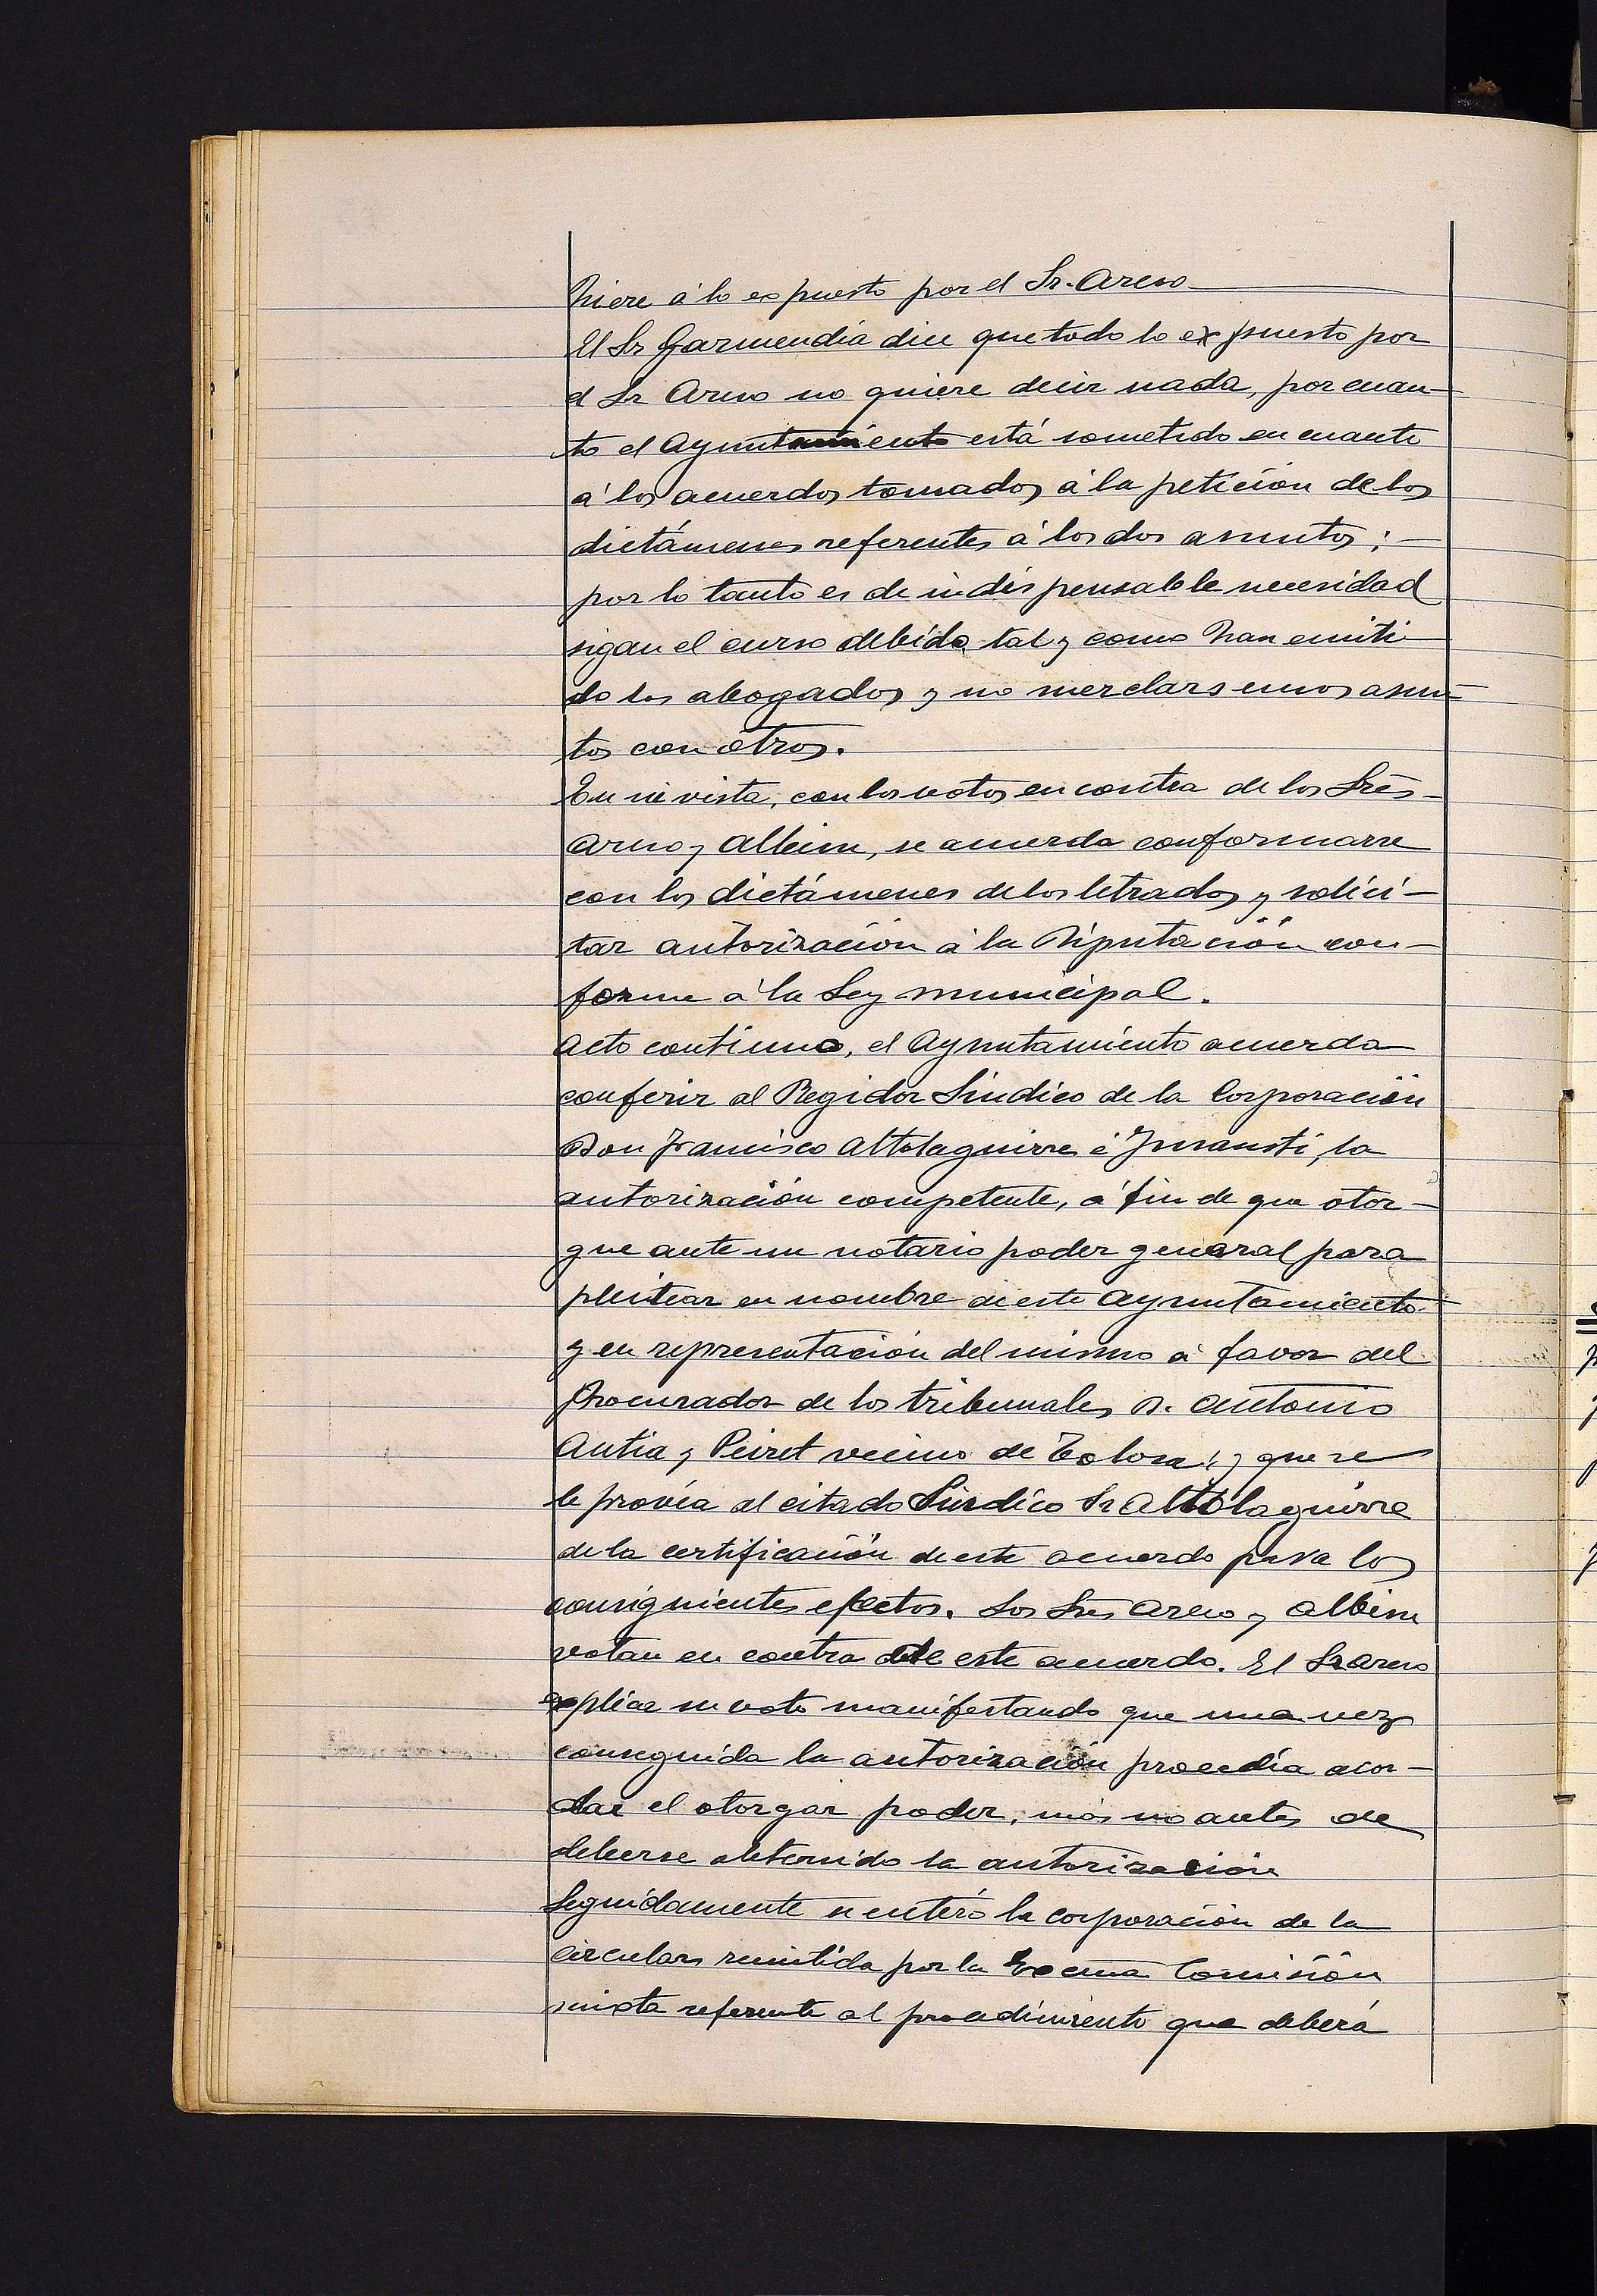 hiere á lo expuesto por el Sr. Areso
El Sr Garmendia dice que todo lo expuesto por
el Sr Areso no quiere decir nada, por cuan-
to el Ayuntamiento está sometido en cuanto
á los acuerdos tomados á la petición de los
dictámenes referentes á los dos asuntos;
por lo tanto es de indispensable necesidad
sigan el curso debido tal y como han emiti
do los abogados y no mezclars unos asun-
tos con otros.
En su vista, con los votos en contra de los Sres
Areso y Albisu, se acuerda conformarse
con los dictámenes de los letrados y solici-
tar autorización á la Diputación con-
forme á la Ley municipal.
Acto continuo, el Ayuntamiento acuerda
conferir al Regidor Sindico de la Corporación
Don Francisco Altolaguirre é Insausti, la
autorización competente, á fin de que otor-
gue ante un notario poder general para
pleitear en nombre de este Ayuntamiento
y en representación del mismo á favor del
Procurador de los tribunales D. Antonio
Antia y Peiret vecino de Tolosa; y que se
le provéa al citado Sindico Sr Altolaguirre
de la certificación de este acuerdo para los
consiguientes efectos. Los Sres Areso y Albisu
votan en contra de este acuerdo. El Sr Areso
explica su voto manifestando que una vez
conseguida la autorización procedía acor-
dar el otorgar poder, más no antes de
deberse obtenido la autorización
Seguidamente se enteró la corporación de la
circulars remitida por la Excma Comisión
mixta referente al procedimiento que deberá